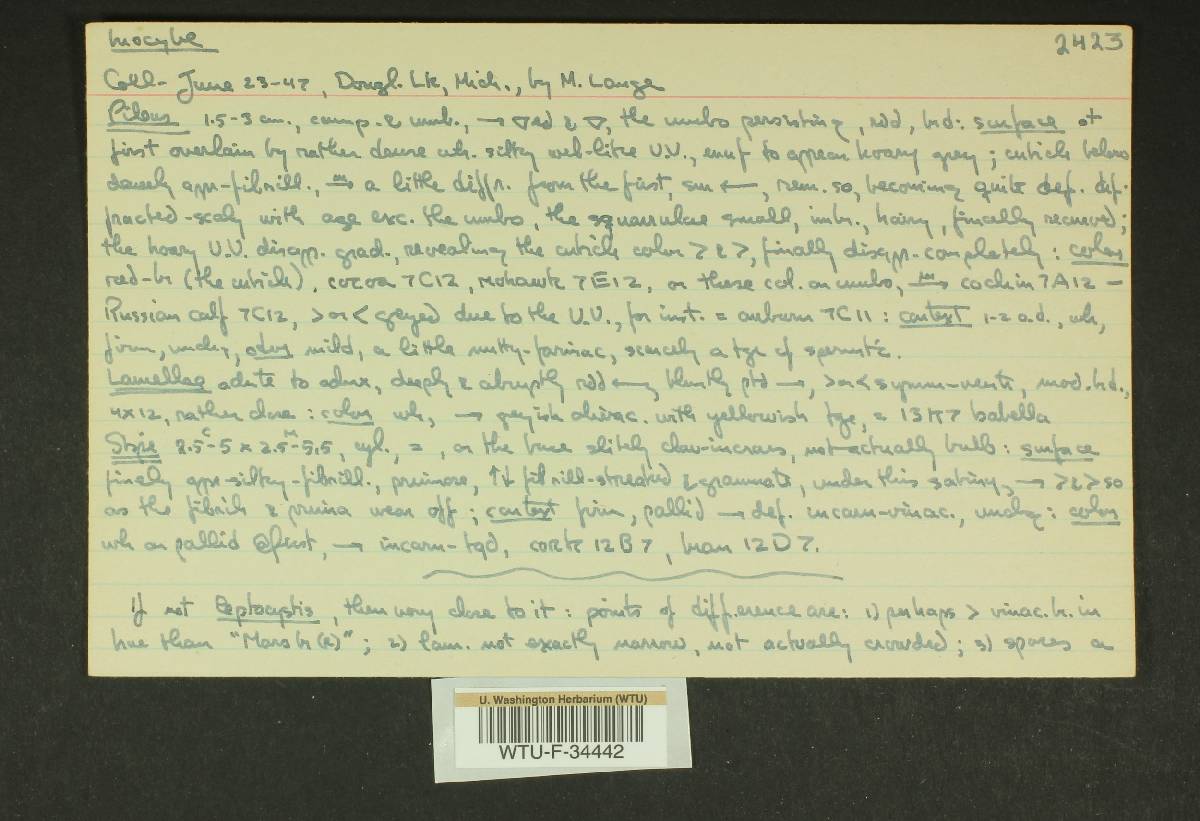 Inocybe 2423
Coll- June 23-47, Dougl. Lk, Mich., by M. Lange
Pileus 1.5-3 cm., camp. & umb., → the umbo persisting, rdd, brd: surface at
first overlain by rather dense wh. silky veb-like U.V., enuf to appear hoary grey; cuticle below
densely appr-fibrill., → a little diffr. from the first, sm ←, rem. so, becoming quite def. dif-
fracted-scaly with age exc. the umbo, the squamulae small, imbr., hairy, finally recurved;
the hoary U.V. disapp. grad., revealing the cuticle color > & >, finally disapp. completely: color
red-br (the cuticle), cocoa 7C12, mohawk 7E12, or these col. on umbo, → cochin 7A12 -
Russian calf 7C12, > or < greyed due to the U.V., for inst. = auburn 7C11: context 1-2 a.d., wh,
firm, undry, odor mild, a little nutty-farinac, scarcely a tge of spermatic.
Lamellae adnate to adnex, deeply & abruptly rdd ←, bluntly ptd →, > or < symm-ventr, mod. brd.,
4x12, rather close: color wh, → greyish olivac. with yellowish tge, = 13K7 Isabella
Stipe 2.5-5 x 2.5-3.5, cyl., =, or the base slitely clav-incras, not actually bulb: surface
finely appr-silky-fibrill., pruinose, ↑↓ fibrill-streaked & grammate, under this satiny, → > & > so
as the fibrils & pruina wear off; context firm, pallid → def. incarn-vinac., undry: color
wh or pallid @first, → incarn-tgd, cork 12B7, bran 12D7.
If not leptocystis, then very close to it: points of difference are: 1) perhaps > vinac. br. in
hue than "Mars br (R)"; 2) lam. not exactly narrow, not actually crowded; 3) spores a
U. Washington Herbarium (WTU)
WTU-F-34442